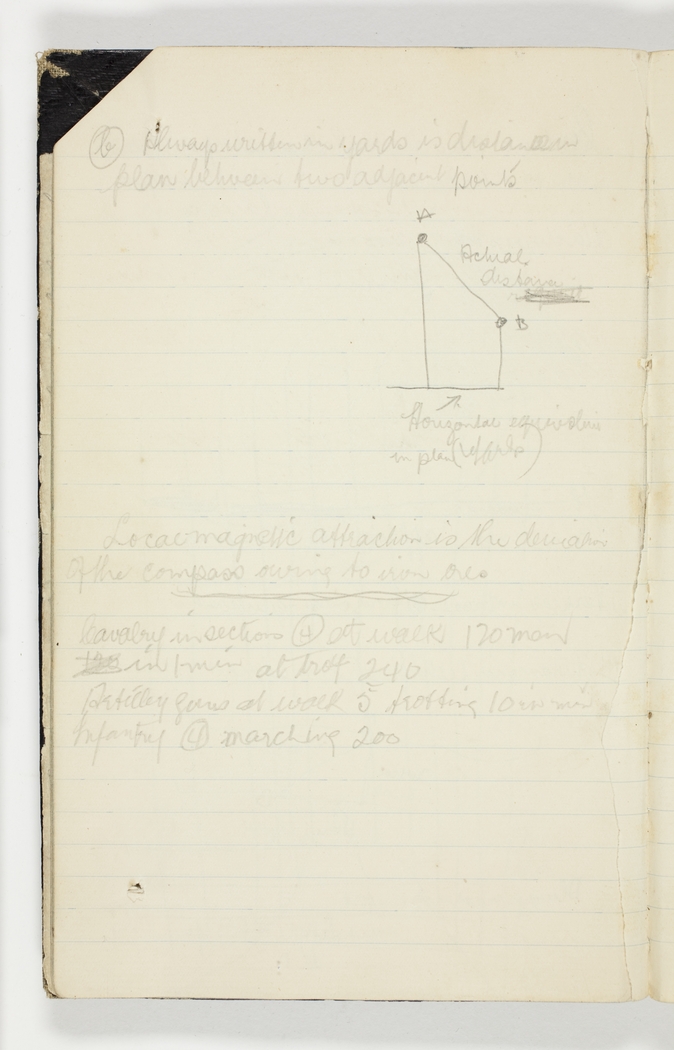 (b) Always written in yards is distance in
plan between two adjacent points
A
Actual
distance
B
Horizontal equivalent
in plan (yards)
Local magnetic attraction is the deviation
of the compass owing to iron ore.
Cavalry in sections (4) at walk 120 men
in 1 min at trot 240
Artillery guns at walk 5 trotting 10 in min
Infantry (4) marching 200